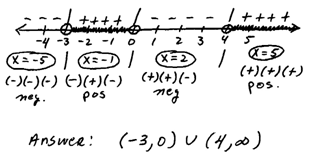 - - - - + + + + - - - - + + + +
-4 -3 -2 -1 0 1 2 3 4 5
x=-5 | x=-1 | x=2 | x=5
(-)(-)(-) (-)(+)(-) (+)(+)(-) (+)(+)(+)
neg. pos neg pos.
Answer: (-3,0) ∪ (4,∞)